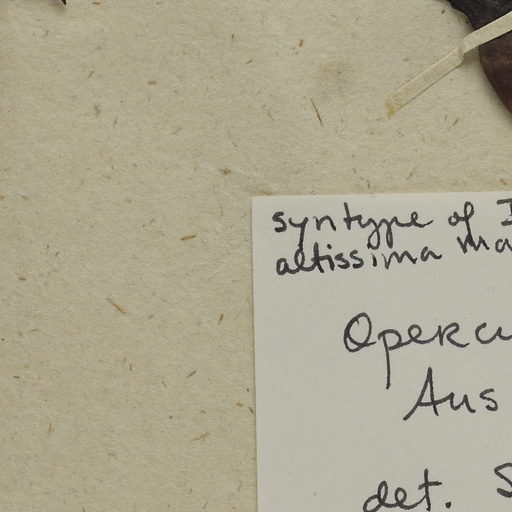 syntype of I
altissima ma
Opercu
Aus
det. S